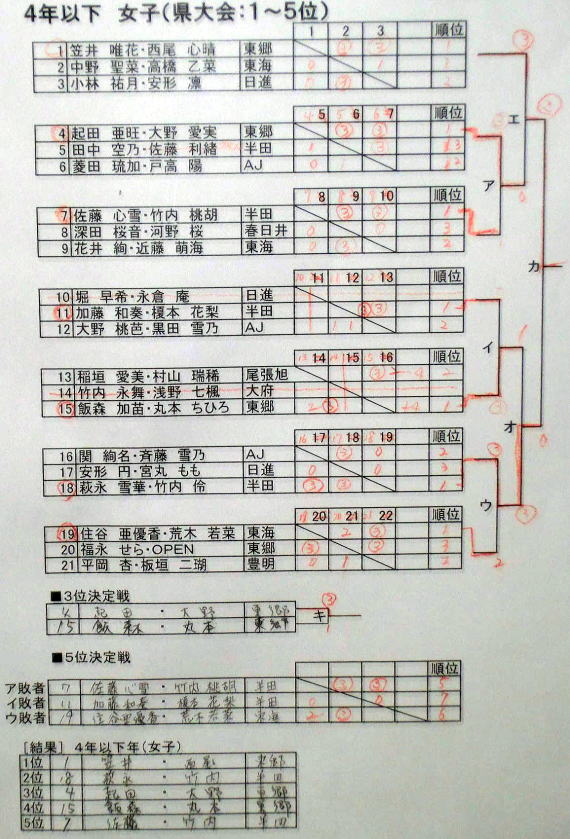 4年以下 女子(県大会:1～5位)
1 2 3 順位
1 笠井 唯花・西尾 心晴 東郷 ② ③ 1
2 中野 聖菜・高橋 乙菜 東海 0 1 3
3 小林 祐月・安形 凛 日進 0 ③ 2
5 6 7 順位
4 起田 亜旺・大野 愛実 東郷 ③ ③ 1
5 田中 空乃・佐藤 利緒 半田 1 ③
6 菱田 琉加・戸高 陽 AJ 0 1
8 9 10 順位
7 佐藤 心雪・竹内 桃胡 半田 ③ ③ 1
8 深田 桜音・河野 桜 春日井 0 0 3
9 花井 絢・近藤 萌海 東海 0 ③ 2
11 12 13 順位
10 堀 早希・永倉 庵 日進
11 加藤 和奏・榎本 花梨 半田 ③ 1
12 大野 桃芭・黒田 雪乃 AJ 1 2
14 15 16 順位
13 稲垣 愛美・村山 瑞稀 尾張旭 2
14 竹内 永舞・浅野 七楓 大府
15 飯森 加苗・丸本 ちひろ 東郷 2 ③ 1
17 18 19 順位
16 関 絢名・斉藤 雪乃 AJ ③ 0 2
17 安形 円・宮丸 もも 日進 0 0 3
18 萩永 雪華・竹内 伶 半田 ③ ③ 1
20 21 22 順位
19 住谷 亜優香・荒木 若菜 東海 2 ③ 1
20 福永 せら・OPEN 東郷 ③ ③
21 平岡 杏・板垣 二瑚 豊明 0 1 2
ア
イ
ウ
エ
オ
カ
■3位決定戦
4 起田 ・ 大野 東郷
15 飯森 ・ 丸本 東郷
キ ③
■5位決定戦
順位
ア敗者 7 佐藤心雪・竹内桃胡 半田 ③ ③ 5
イ敗者 11 加藤和奏・榎本花梨 半田 0 2 7
ウ敗者 19 住谷亜優香・荒木若菜 東海 2 ③ 6
[結果] 4年以下年(女子)
1位 1 笠井 ・ 西尾 東郷
2位 18 萩永 ・ 竹内 半田
3位 4 起田 ・ 大野 東郷
4位 15 飯森 ・ 丸本 東郷
5位 7 佐藤 ・ 竹内 半田